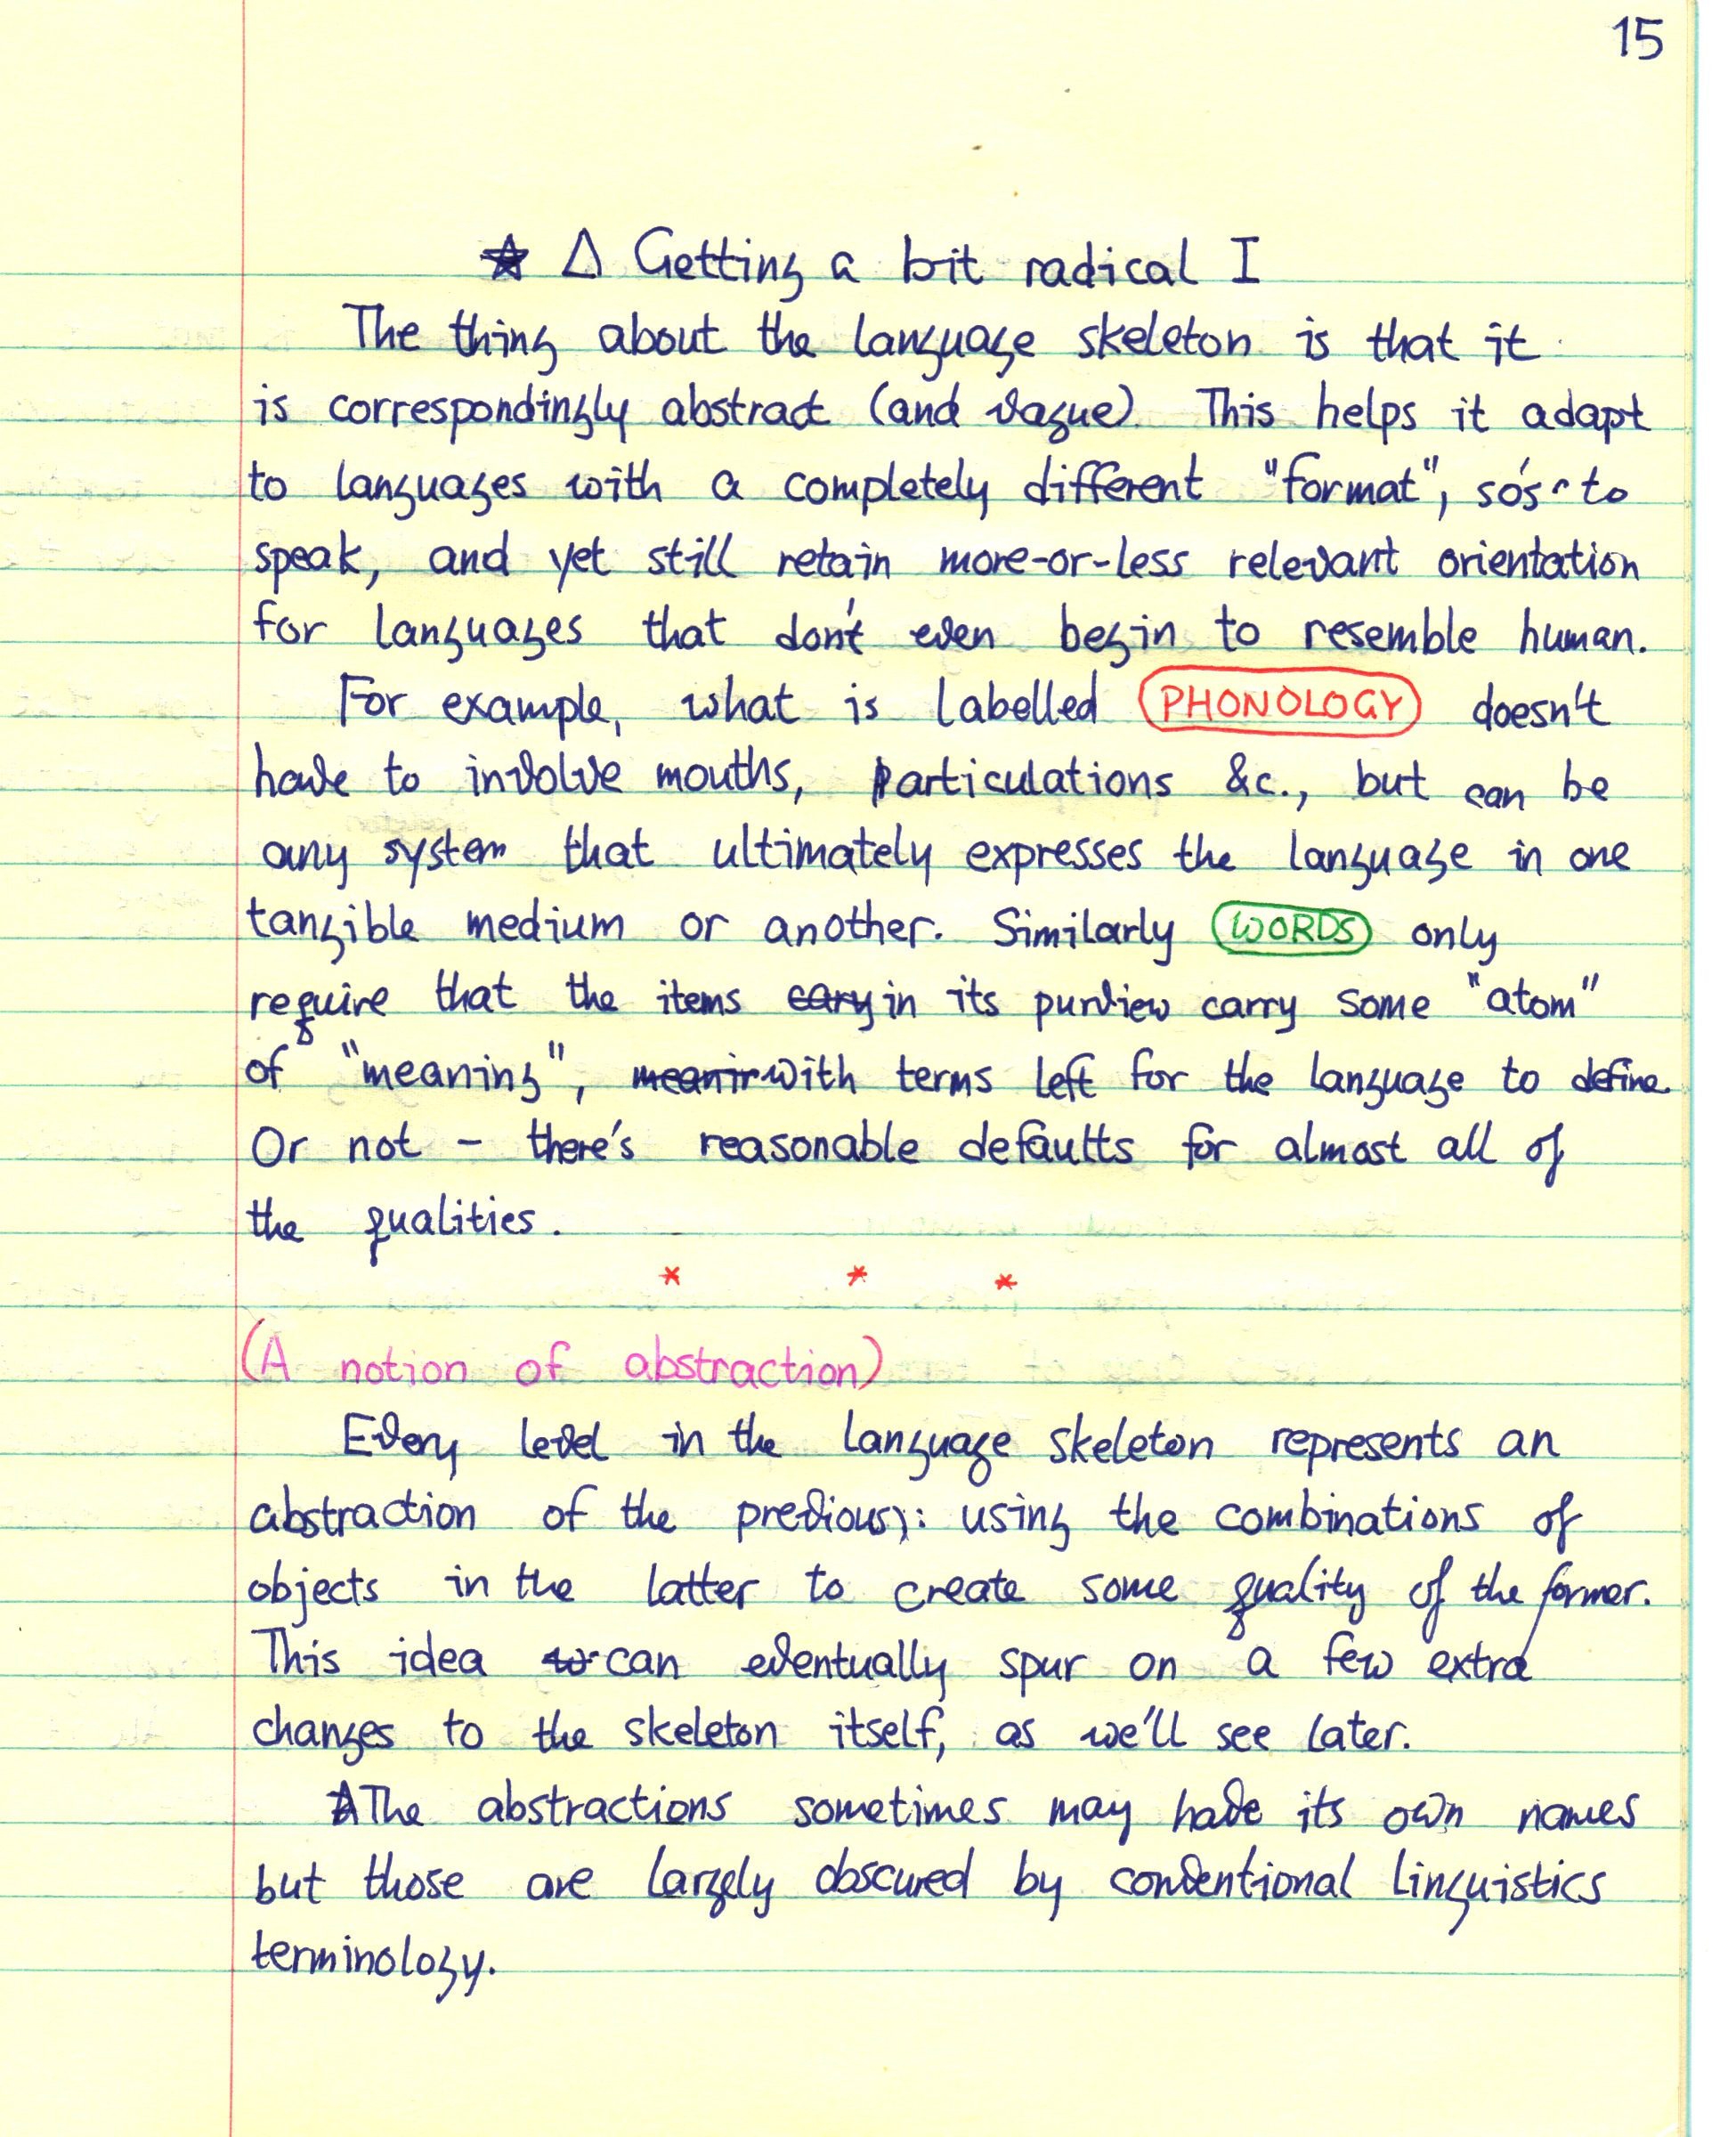 15
★ △ Getting a bit radical I
The thing about the language skeleton is that it
is correspondingly abstract (and vague). This helps it adapt
to languages with a completely different "format", so to
speak, and yet still retain more-or-less relevant orientation
for languages that don't even begin to resemble human.
For example, what is labelled PHONOLOGY doesn't
have to involve mouths, particulations &c., but can be
any system that ultimately expresses the language in one
tangible medium or another. Similarly WORDS only
require that the items cary in its purview carry some "atom"
of "meaning", meanir with terms left for the language to define.
Or not – there's reasonable defaults for almost all of
the qualities.
* * *
(A notion of abstraction)
Every level in the language skeleton represents an
abstraction of the previous: using the combinations of
objects in the latter to create some quality of the former.
This idea to can eventually spur on a few extra
changes to the skeleton itself, as we'll see later.
The abstractions sometimes may have its own names
but those are largely obscured by conventional linguistics
terminology.